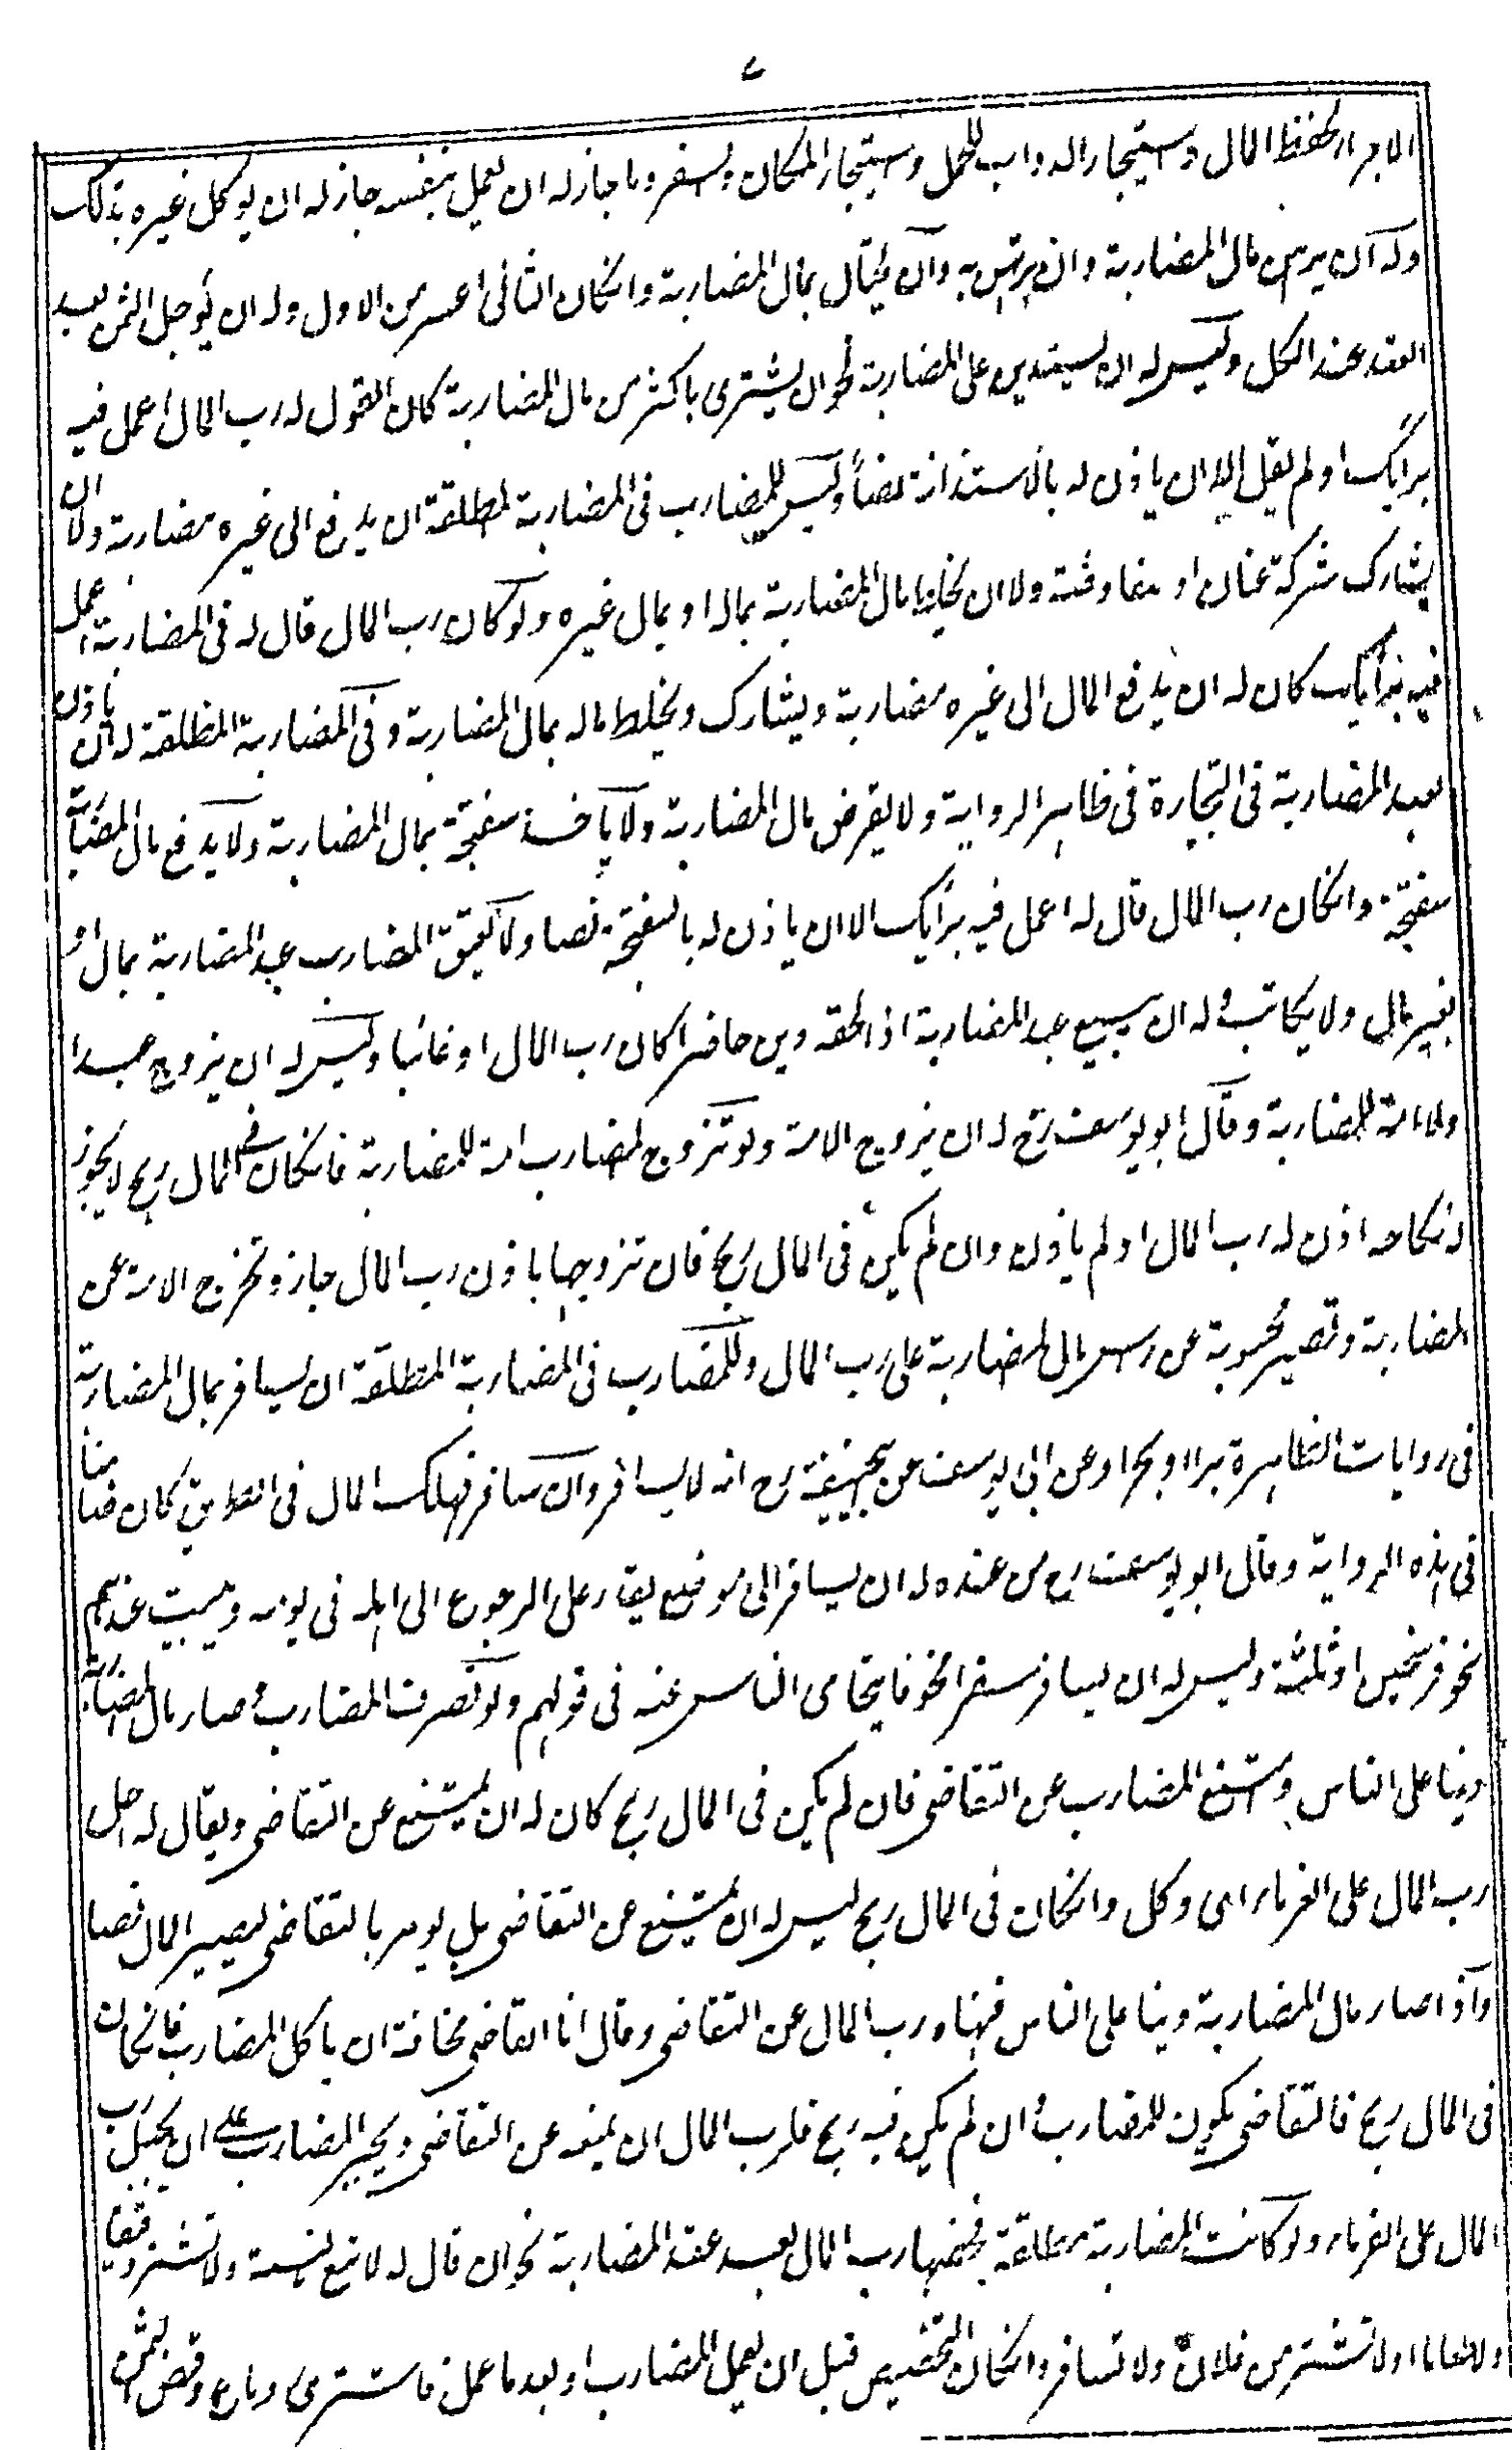 ٧
الاجراء لحفظ المال واستيجار الدواب للحمل واستيجار المكان والسفر وما جاز له ان يعمل بنفسه جاز له ان يوكل غيره بذلك
وله ان يرهن مال المضاربة وان يرتهن به وان يحتال بمال المضاربة وانكان الثانى اعسر من الاول وله ان يؤجل الثمن بعد
العقد عند الكل وليس له ان يستدين على المضاربة نحو ان يشترى باكثر من مال المضاربة كان القول له رب المال اعمل فيه
برأيك او لم يقل الا ان ياذن له بالاستدانة نصاً وليس للمضارب فى المضاربة المطلقة ان يدفع الى غيره مضاربة ولا ان
يشارك شركة عنان او مفاوضة ولا ان يخلط مال المضاربة بماله او بمال غيره ولو كان رب المال قال له فى المضاربة اعمل
فيه برأيك كان له ان يدفع المال الى غيره مضاربة ويشارك ويخلط ماله بمال المضاربة وفى المضاربة المطلقة له ان ياذن
لعبد المضاربة فى التجارة فى ظاهر الرواية ولا يقرض مال المضاربة ولا ياخذ سفتجة بمال المضاربة ولا يدفع مال المضاربة
سفتجة وانكان رب المال قال له اعمل فيه برأيك الا ان ياذن له بالسفتجة نصا ولا يعتق المضارب عبد المضاربة بمال او
بغير مال ولا يكاتب وله ان يبيع عبد المضاربة اذا لحقه دين حاضرا كان رب المال او غائبا وليس له ان يزوج عبدا
ولا امة للمضاربة وقال ابو يوسف رح له ان يزوج الامة ولو تزوج المضارب امة للمضاربة فانكان فى المال ربح لا يجوز
نكاحه اذن له رب المال او لم ياذن وان لم يكن فى المال ربح فان تزوجها باذن رب المال جاز وتخرج الامة عن
المضاربة وتصير محسوبة عن راس مال المضاربة على رب المال وللمضارب فى المضاربة المطلقة ان يسافر بمال المضاربة
فى روايات الظاهرة برا وبحرا وعن ابى يوسف عن ابيحنيفة رح انه لا يسافر وان سافر فهلك المال فى الطريق كان ضامنا
فى هذه الرواية وقال ابو يوسف رح من عنده له ان يسافر الى موضع يقدر على الرجوع الى اهله فى يومه ويبيت عندهم
نحو فرسخين او ثلثة وليس له ان يسافر سفرا مخوفا يتحامى الناس عنه فى قولهم ولو تصرف المضارب وصار مال المضاربة
دينا على الناس وامتنع المضارب عن التقاضى فان لم يكن فى المال ربح كان له ان يمتنع عن التقاضى ويقال له احل
رب المال على الغرماء اى وكل وانكان فى المال ربح ليس له ان يمتنع عن التقاضى بل يؤمر بالتقاضى ليصير المال نضا
واذا صار مال المضاربة دينا على الناس فنهاه رب المال عن التقاضى وقال انا اتقاضى مخافة ان ياكل المضارب فانكان
فى المال ربح فالتقاضى يكون للمضارب وان لم يكن فيه ربح فلرب المال ان يمنعه عن التقاضى ويجبر المضارب على ان يحيل رب
المال على الغرماء ولو كانت المضاربة مطلقة فخصها رب المال بعد عقد المضاربة نحو ان قال له لا تبع بنسيئة ولا تشتر دقيقا
ولا طعاما او لا تشتر من فلان ولا تسافر وانكان التخصيص قبل ان يعمل المضارب او بعد ما عمل فاشترى وباع وقبض الثمن